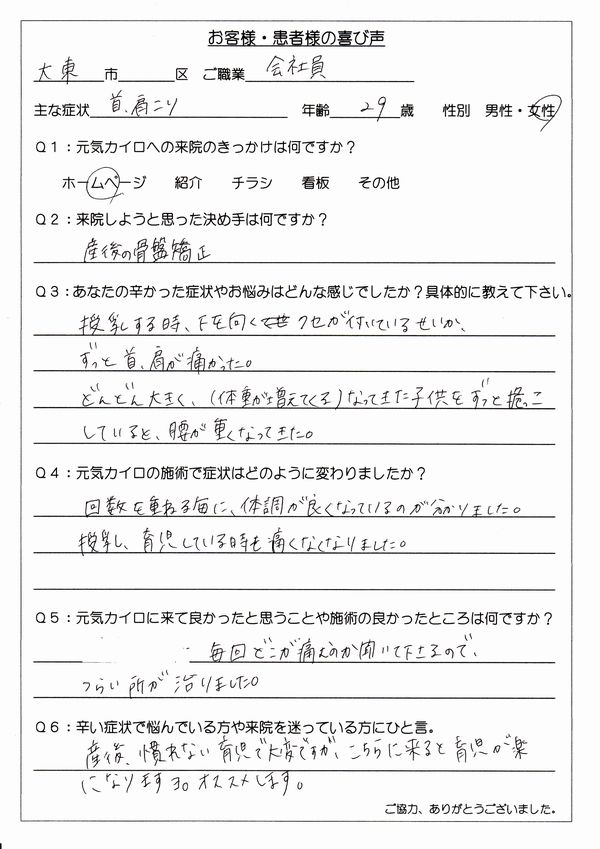 お客様・患者様の喜び声
大東市 区 ご職業 会社員
主な症状 首、肩こり 年齢 29 歳 性別 男性・女性
Q1：元気カイロへの来院のきっかけは何ですか？
ホームページ 紹介 チラシ 看板 その他
Q2：来院しようと思った決め手は何ですか？
産後の骨盤矯正
Q3：あなたの辛かった症状やお悩みはどんな感じでしたか？具体的に教えて下さい。
授乳する時、下を向く クセが付いているせいか、
ずっと首、肩が痛かった。
どんどん大きく、(体重が増えてくる)なってきた子供をずっと抱っこ
していると、腰が重くなってきた。
Q4：元気カイロの施術で症状はどのように変わりましたか？
回数を重ねる毎に、体調が良くなっているのが分かりました。
授乳し、育児している時も痛くなくなりました。
Q5：元気カイロに来て良かったと思うことや施術の良かったところは何ですか？
毎回どこが痛えのか聞いて下さるので、
つらい所が治りました。
Q6：辛い症状で悩んでいる方や来院を迷っている方にひと言。
産後、慣れない育児で大変ですが、こちらに来ると育児が楽
になりますヨ。オススメします。
ご協力、ありがとうございました。